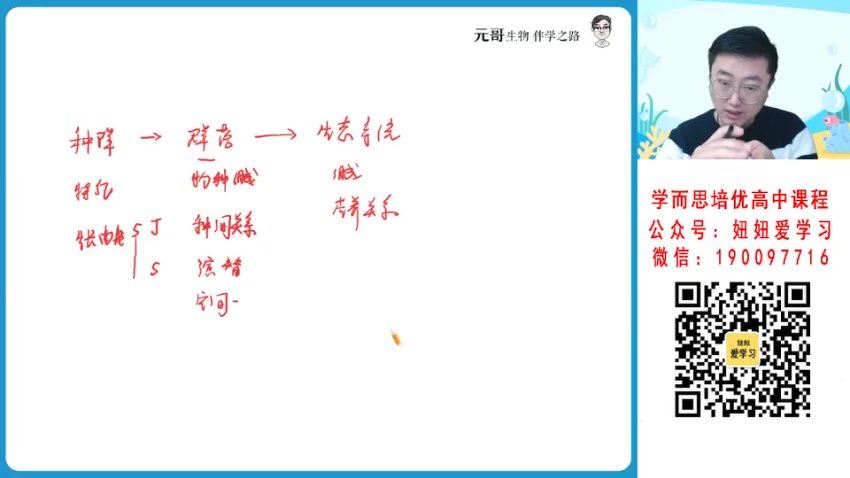 元哥生物 伴学之路
种群 → 群落 → 生态系统
特征
物种
种间关系
J
S
演替
空间
营养关系
学而思培优高中课程
公众号：妞妞爱学习
微信：190097716
妞妞
爱学习